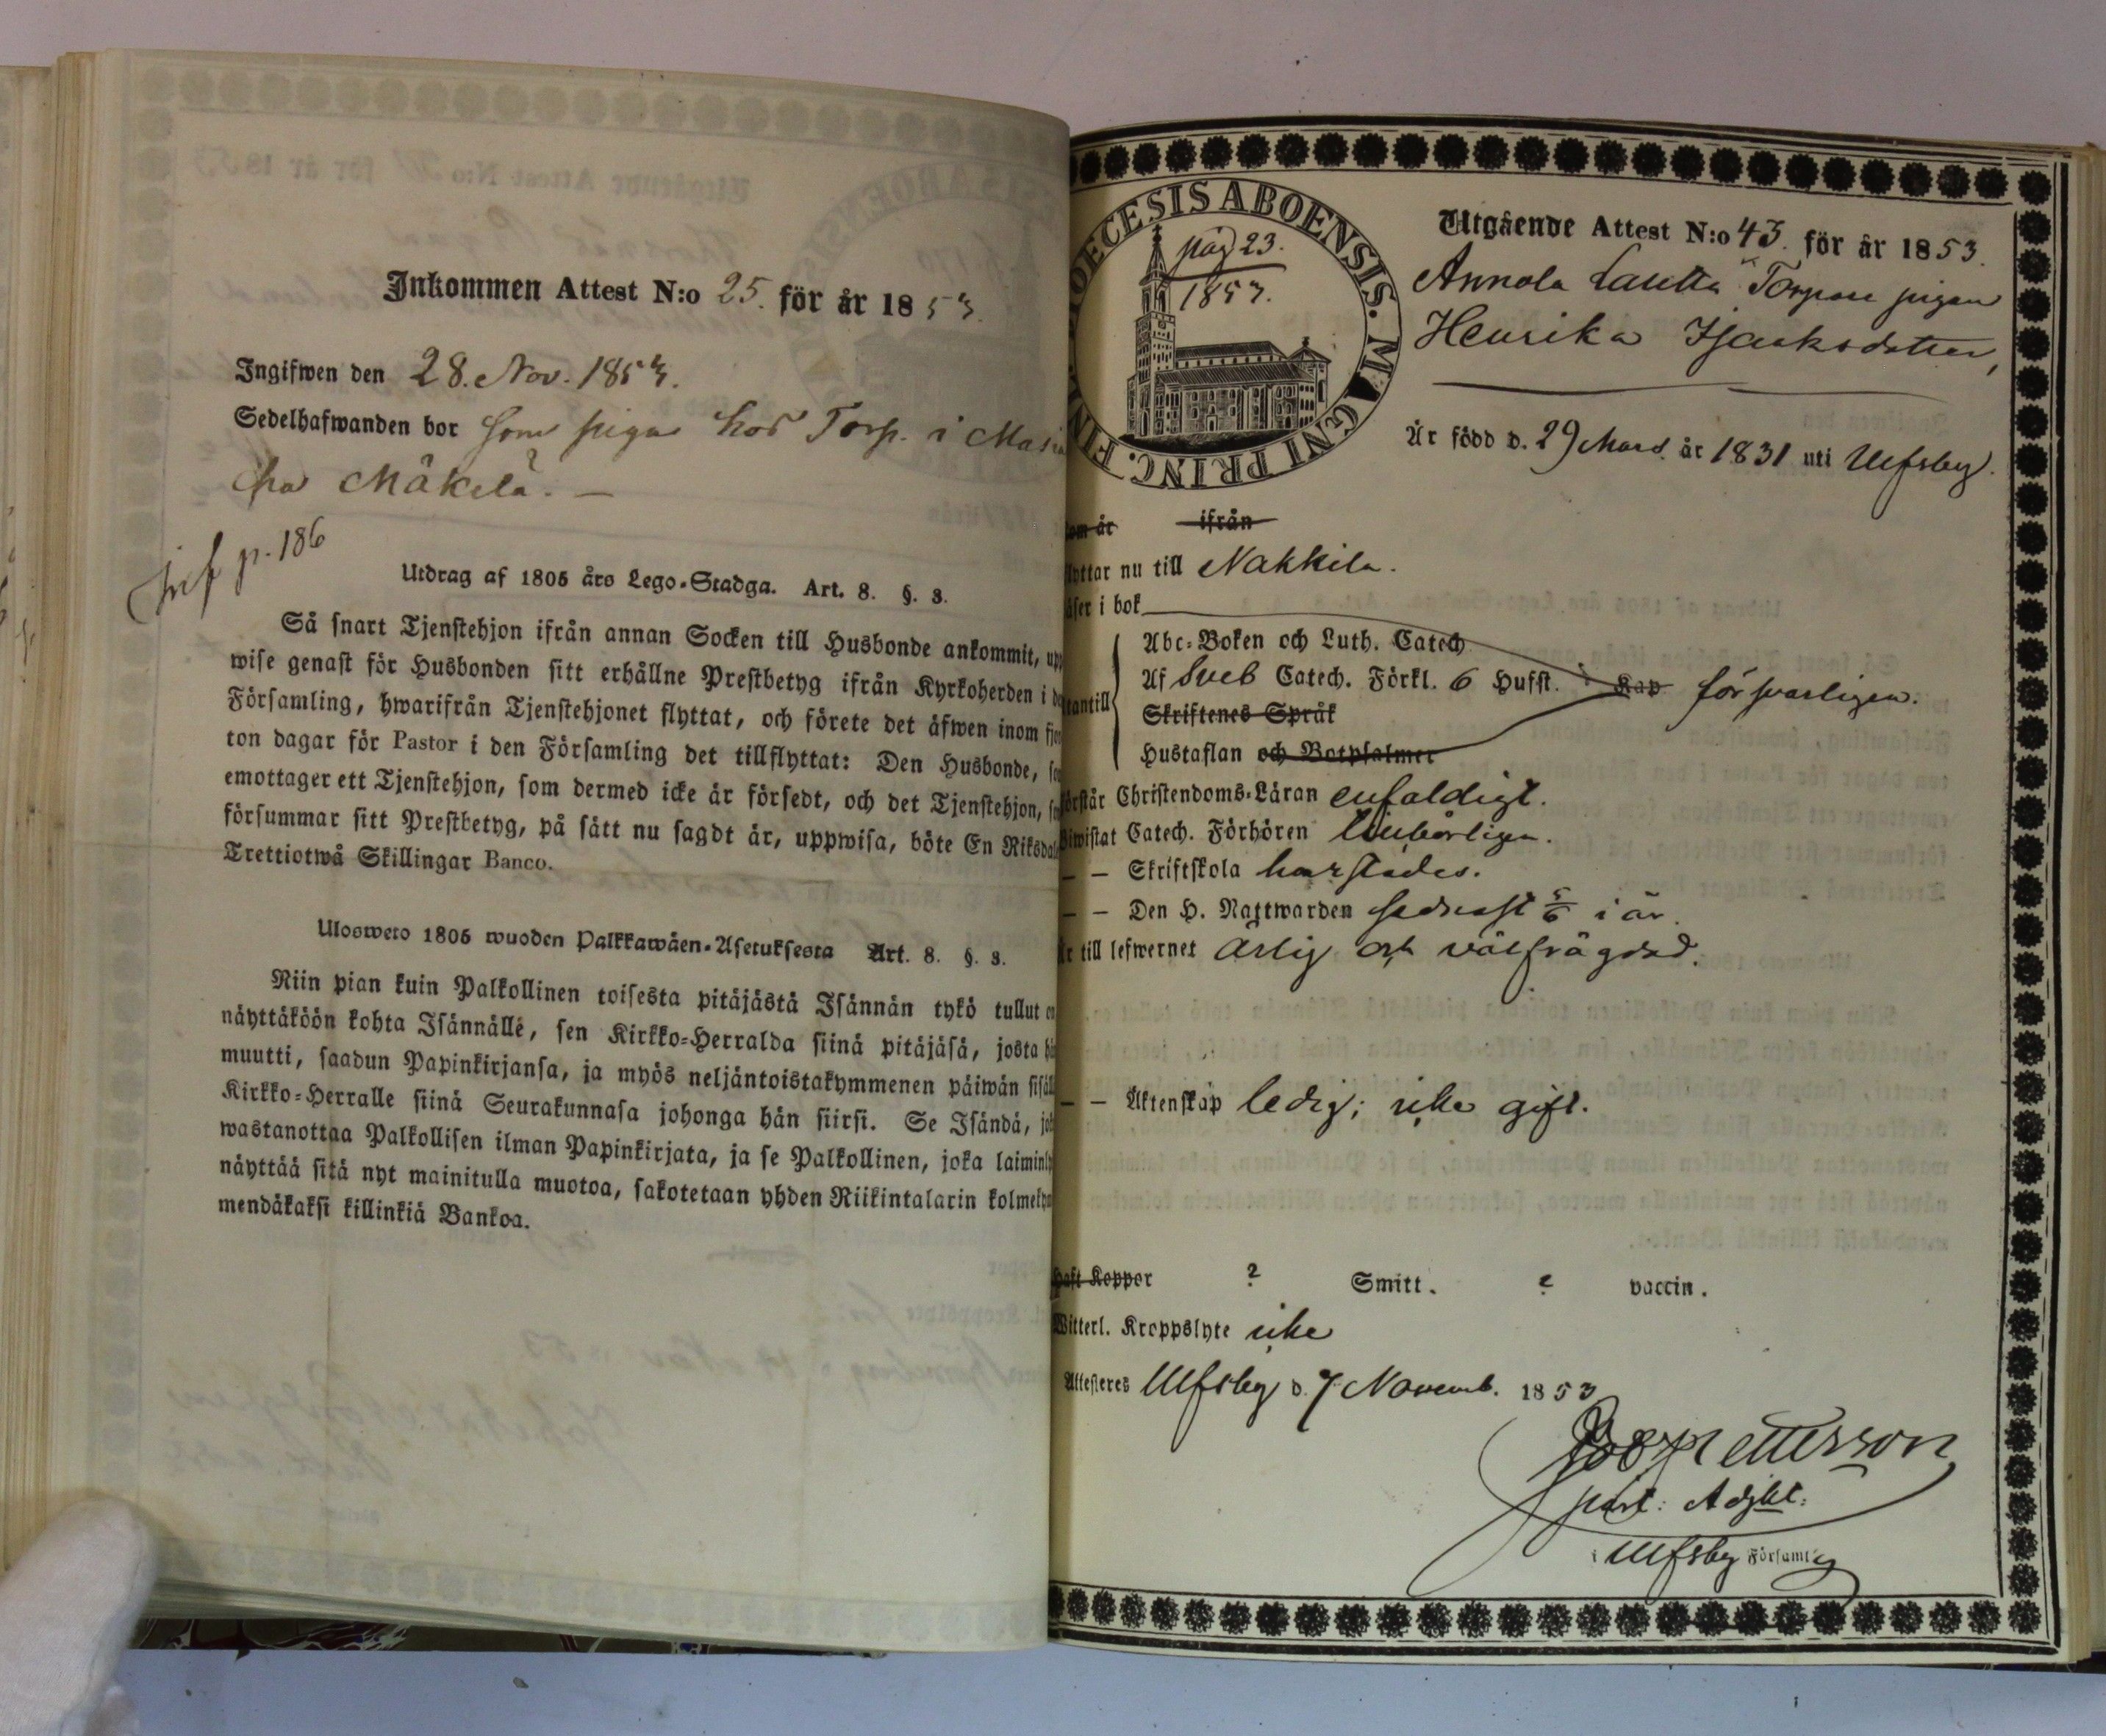 Inkommen Attest N:o 25. för år 1853.
Ingifwen den 28. Nov. 1853.
Sedelhafwanden bor som piga hos Torp. i
Mäkelä. —
p. 186
Utdrag af 1805 års Lego-Stadga. Art. 8. §. 3.
Så snart Tjenstehjon ifrån annan Socken till Husbonde ankommit, upp
wise genast för Husbonden sitt erhållne Prestbetyg ifrån Kyrkoherden i de
Församling, hwarifrån Tjenstehjonet flyttat, och förete det äfwen inom fjor
ton dagar för Pastor i den Församling det tillflyttat: Den Husbonde, so
emottager ett Tjenstehjon, som dermed icke är försedt, och det Tjenstehjon, so
försummar sitt Prestbetyg, på sätt nu sagdt är, uppwisa, böte En Riksdal
Trettiotwå Skillingar Banco.
Ulosweto 1805 wuoden Palkkawäen-Asetuksesta Art. 8. §. 3.
Niin pian kuin Palkollinen toisesta pitäjästä Isännän tykö tullut on
näyttäköön kohta Isännälle, sen Kirkko-Herralda siinä pitäjäsä, josta hän
muutti, saadun Papinkirjansa, ja myös neljäntoistakymmenen päiwän sisäll
Kirkko-Herralle siinä Seurakunnasa johonga hän siirsi. Se Isändä, jok
wastanottaa Palkollisen ilman Papinkirjata, ja se Palkollinen, joka laiminly
näyttää sitä nyt mainitulla muotoa, sakotetaan yhden Riikintalarin kolmeky
mendäkaksi killinkiä Bankoa.
DIOECESIS ABOENSIS. MAGNI PRINC. FINL.
pag 23.
1853.
Utgående Attest N:o 43. för år 1853.
Annola Torpare pigan
Henrika Isaaksdotter,
Är född d. 29 Mars. år 1831 uti Ulfsby.
om år ifrån
lyttar nu till Nakkila.
äser i bok
tantill
Abc-Boken och Luth. Catech
Af Sveb Catech. Förkl. 6 Hufst. Kap försvarligen.
Skriftenes Språk
Hustaflan och Botpsalmer
örstår Christendoms-Läran enfaldigt.
iwistat Catech. Förhören
— — Skriftskola
— — Den H. Nattwarden sednast 5/6 i år.
r till lefwernet ärlig och välfrägdad.
— — Äktenskap ledig; icke gift.
Haft Koppor ? Smitt. ? vaccin.
Witterl. Kroppslyte icke
Attesteres Ulfsby d. 7 Novemb. 1853
Petterson
past: Adjkt:
i Ulfsby Församl